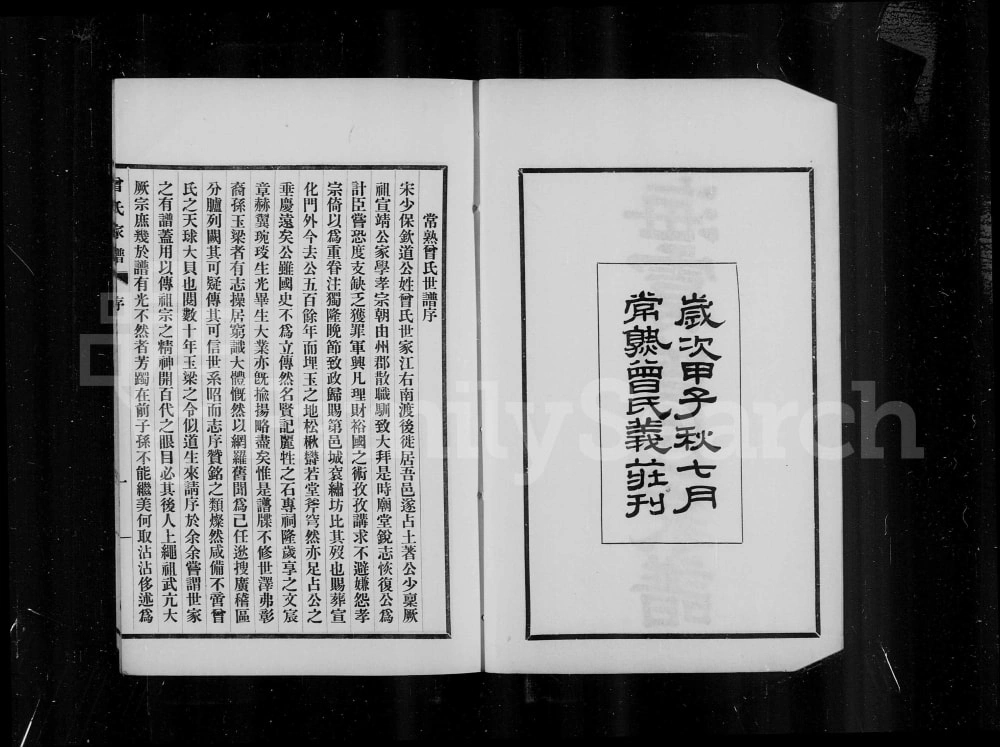 歲次甲子秋七月
常熟曾氏義莊刊
常熟曾氏世譜序
宋少保欽道公姓曾氏世家江右南渡後徙居吾邑遂占土著公少稟厥
祖宣靖公家學孝宗朝由州郡散職馴致大拜是時廟堂銳志恢復公為
計臣嘗恐度支缺乏獲罪軍興凡理財裕國之術孜孜講求不避嫌怨孝
宗倚以為重眷注獨隆晚節致政歸賜第邑城袞繡坊比其歿也賜葬宣
化門外今去公五百餘年而埋玉之地松楸鬱若堂斧穹然亦足占公之
垂慶遠矣公雖國史不為立傳然名賢記麗牲之石專祠隆歲享之文宸
章赫翼琬琰生光畢生大業亦既揄揚略盡矣惟是譜牒不修世澤弗彰
裔孫玉梁者有志操居窮識大體慨然以網羅舊聞為己任遂搜廣稽區
分臚列闕其可疑傳其可信世系昭而志序贊銘之類燦然咸備不啻曾
氏之天球大貝也閱數十年玉梁之令似道生來請序於余余嘗謂世家
之有譜蓋用以傳祖宗之精神開百代之眼目必其後人上繩祖武亢大
厥宗庶幾於譜有光不然者芳躅在前子孫不能繼美何取沾沾侈述為
曾氏家譜
序
一
FamilySearch